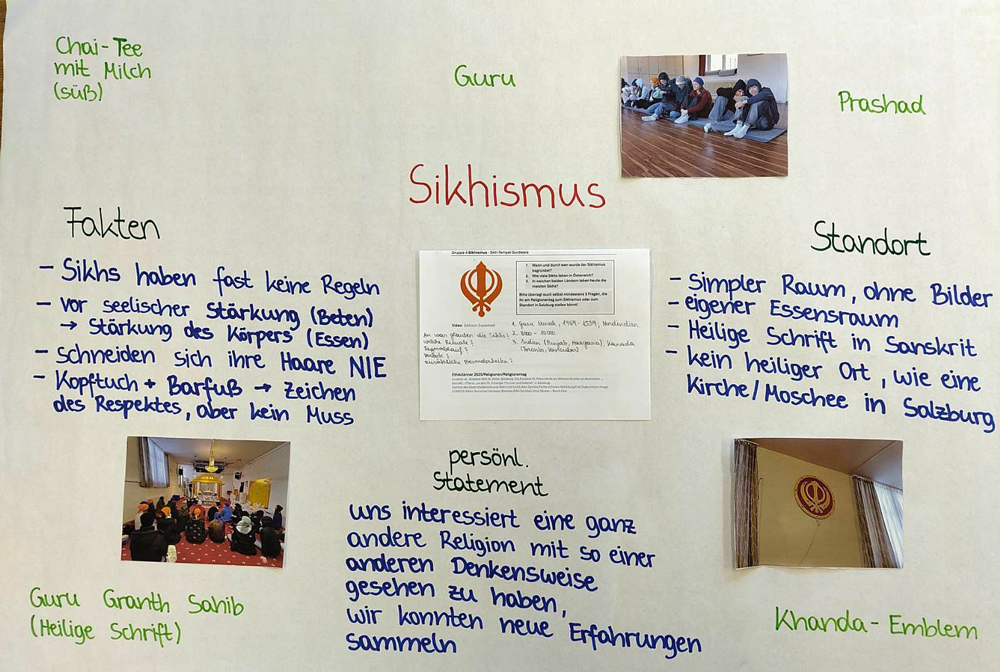 Chai-Tee
mit Milch
(süß)
Guru
Prashad
Sikhismus
Fakten
- Sikhs haben fast keine Regeln
- vor seelischer Stärkung (Beten)
→ Stärkung des Körpers (Essen)
- schneiden sich ihre Haare NIE
- Kopftuch + Barfuß → Zeichen
des Respektes, aber kein Muss
Gruppe 4 Sikhismus - Sikh-Tempel Gurdwara
1. Wann und durch wen wurde der Sikhismus
begründet?
2. Wie viele Sikhs leben in Österreich?
3. In welchen beiden Ländern leben heute die
meisten Sikhs?
Bitte überlegt euch selbst mindestens 3 Fragen, die
ihr am Religionentag zum Sikhismus oder zum
Standort in Salzburg stellen könnt!
Video:
An was glauben die Sikhs?
welche Rituale?
Tagesablauf?
1. Guru Nanak, 1469 - 1539, Nordindien
2.
3. Indien (Punjab, Haryana), Kanada
Standort
- simpler Raum, ohne Bilder
- eigener Essensraum
- Heilige Schrift in Sanskrit
- kein heiliger Ort, wie eine
Kirche/Moschee in Salzburg
persönl.
Statement
uns interessiert eine ganz
andere Religion mit so einer
anderen Denkensweise
gesehen zu haben,
wir konnten neue Erfahrungen
sammeln
Guru Granth Sahib
(Heilige Schrift)
Khanda-Emblem